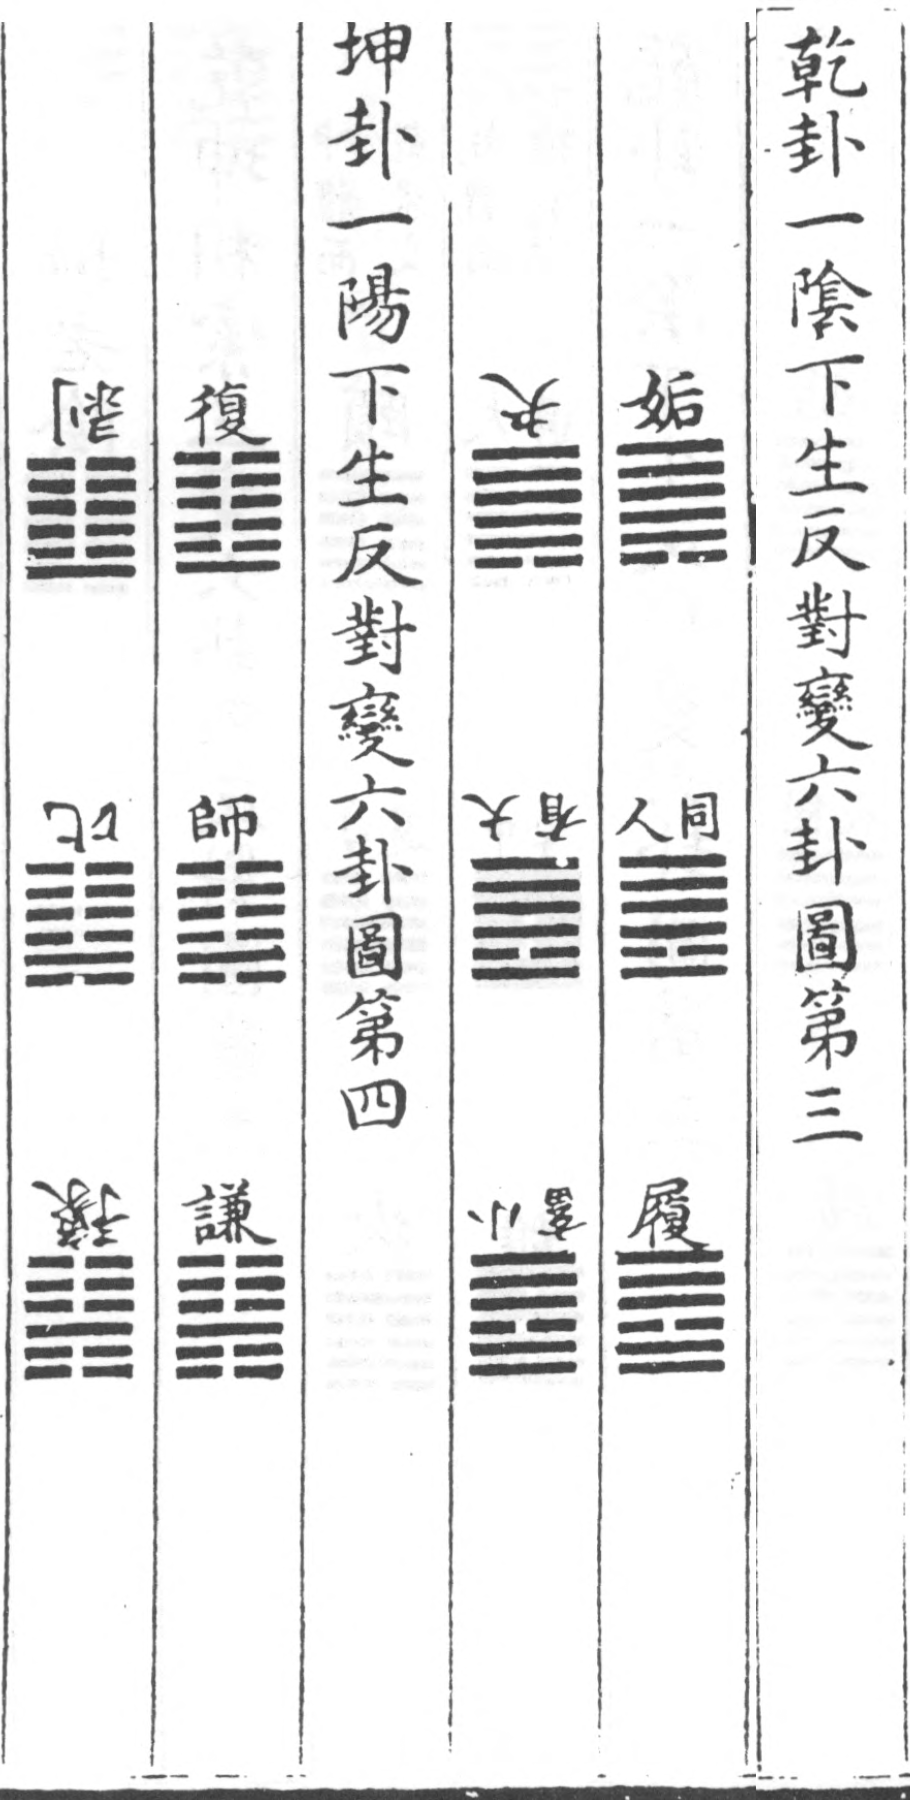 乾卦一陰下生反對變六卦圖第三
姤
同人
履
夬
大有
小畜
坤卦一陽下生反對變六卦圖第四
復
師
謙
剥
比
豫